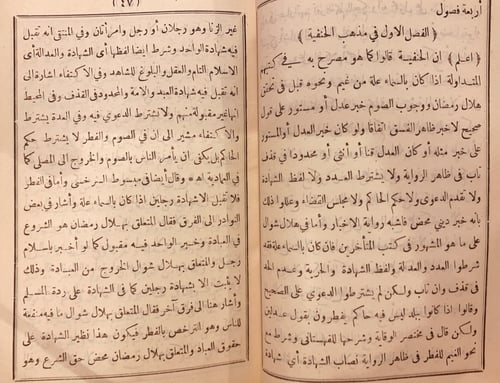 أربعة فصول
(الفصل الاول في مذهب الحنفية)
(اعلم) ان الحنفية قالوا كما هو مصرح به في كتبهم
المتداولة اذا كان بالسماء علة من غيم ونحوه قبل في تحقق
هلال رمضان ووجوب الصوم خبر عدل أو مستور على قول
صحيح لا خبر ظاهر الفسق اتفاقا ولو كان خبر العدل أو المستور
على خبر مثله أو كان العدل قنا أو أنثى أو محدودا في قذف
تاب في ظاهر الرواية ولا يشترط العدد ولا لفظ الشهادة
ولا تقدم الدعوى ولا حكم الحاكم ولا مجلس القضاء وعللوا ذلك
بانه خبر ديني محض فاشبه رواية الاخبار وأما في هلال شوال
على ما هو المشهور في كتب المتأخرين فان كان بالسماء علة فقد
شرطوا العدد والعدالة ولفظ الشهادة والحرية وعدم الحد
في قذف وان تاب ولكن لم يشترطوا الدعوى على الصحيح
وقالوا اذا كانوا ببلد ليس فيه حاكم يفطرون بقول عدلين
ولكن قال في مختصر الوقاية وشرحها للقهستاني وشرط مع
نحو الغيم للفطر في ظاهر الرواية نصاب الشهادة أي شهادة
(٤٧)
غير الزنا وهو رجلان أو رجل وامرأتان وفي المنتقى انه تقبل
فيه شهادة الواحد وشرط ايضا لفظها أي الشهادة والعدالة أي
الاسلام التام والعقل والبلوغ للشاهد وفي الاكتفاء اشارة الى
انه تقبل فيه شهادة العبد والامة والمحدود في القذف وفي المحيط
انها غير مقبولة منهم ولا تشترط الدعوى فيه وفي العدة يشترط
والاكتفاء مشير الى ان في الصوم والفطر لا يشترط حكم
الحاكم بل يكفي ان يأمر الناس بالصوم والخروج الى المصلى كما
في العمادية اه وقال أيضا في مبسوط السرخسي وأما في الفطر
فلا تقبل الا شهادة رجلين اذا كان بالسماء علة وأشار في بعض
النوادر الى الفرق فقال المتعلق بهلال رمضان هو الشروع
في العبادة وخبر الواحد فيه مقبول كما لو أخبر باسلام
رجل والمتعلق بهلال شوال الخروج من العبادة وذلك
لا يثبت الا بشهادة رجلين كما في الشهادة على ردة المسلم
وأشار هنا الى فرق آخر فقال المتعلق بهلال شوال ما فيه منفعة
للناس وهو الترخص بالفطر فيكون هذا نظير الشهادة على
حقوق العباد والمتعلق بهلال رمضان محض حق الشرع وهو